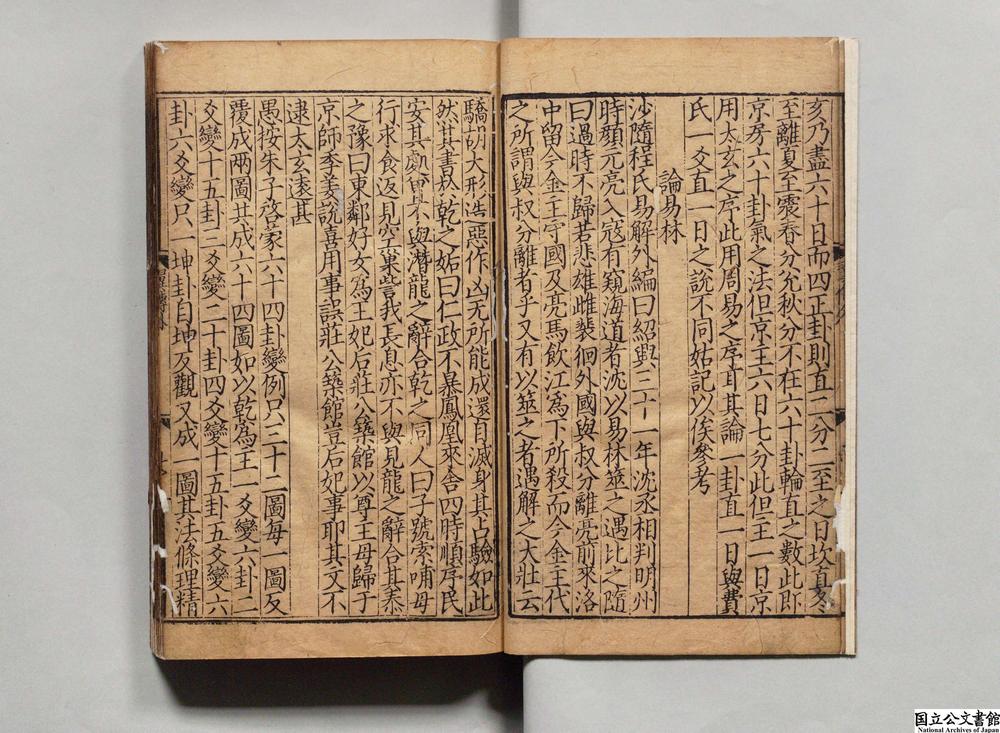 亥乃盡六十日而四正卦則直二分二至之日坎直冬
至離夏至震春分兊秋分不在六十卦輪直之數此即
京房六十卦氣之法但京主六日七分此但主一日京
用太玄之序此用周易之序耳其論一卦直一日與費
氏一爻直一日之說不同姑記以俟參考
論易林
沙隨程氏易解外編曰紹興三十一年沈丞相判明州
時顏元亮入寇有窺海道者沈以易林筮之遇比之隨
曰過時不歸若悲雄雌裴徊外國與叔分離亮前來洛
中留今金主守國及亮馬飲江爲下所殺而今金主代
之所謂與叔分離者乎又有以筮之者遇解之大壯云
驕胡大形造惡作凶无所能成還自滅身其占驗如此
然其書於乾之姤曰仁政不暴鳳凰來舍四時順序民
安其處畢不與潛龍之辭合乾之同人曰子號索哺母
行求食返見空巢訾我長息亦不與見龍之辭合其泰
之豫曰東鄰好女爲王妃后莊公築館以尊王母歸于
京師季姜說喜用事誤莊公築館豈后妃事耶其文不
逮太玄遠甚
愚按朱子啓蒙六十四卦變例只三十二圖每一圖反
覆成兩圖共成六十四圖如以乾爲主一爻變六卦二
爻變十五卦三爻變二十卦四爻變十五卦五爻變六
卦六爻變只一坤卦自坤反觀又成一圖其法條理精
国立公文書館
National Archives of Japan